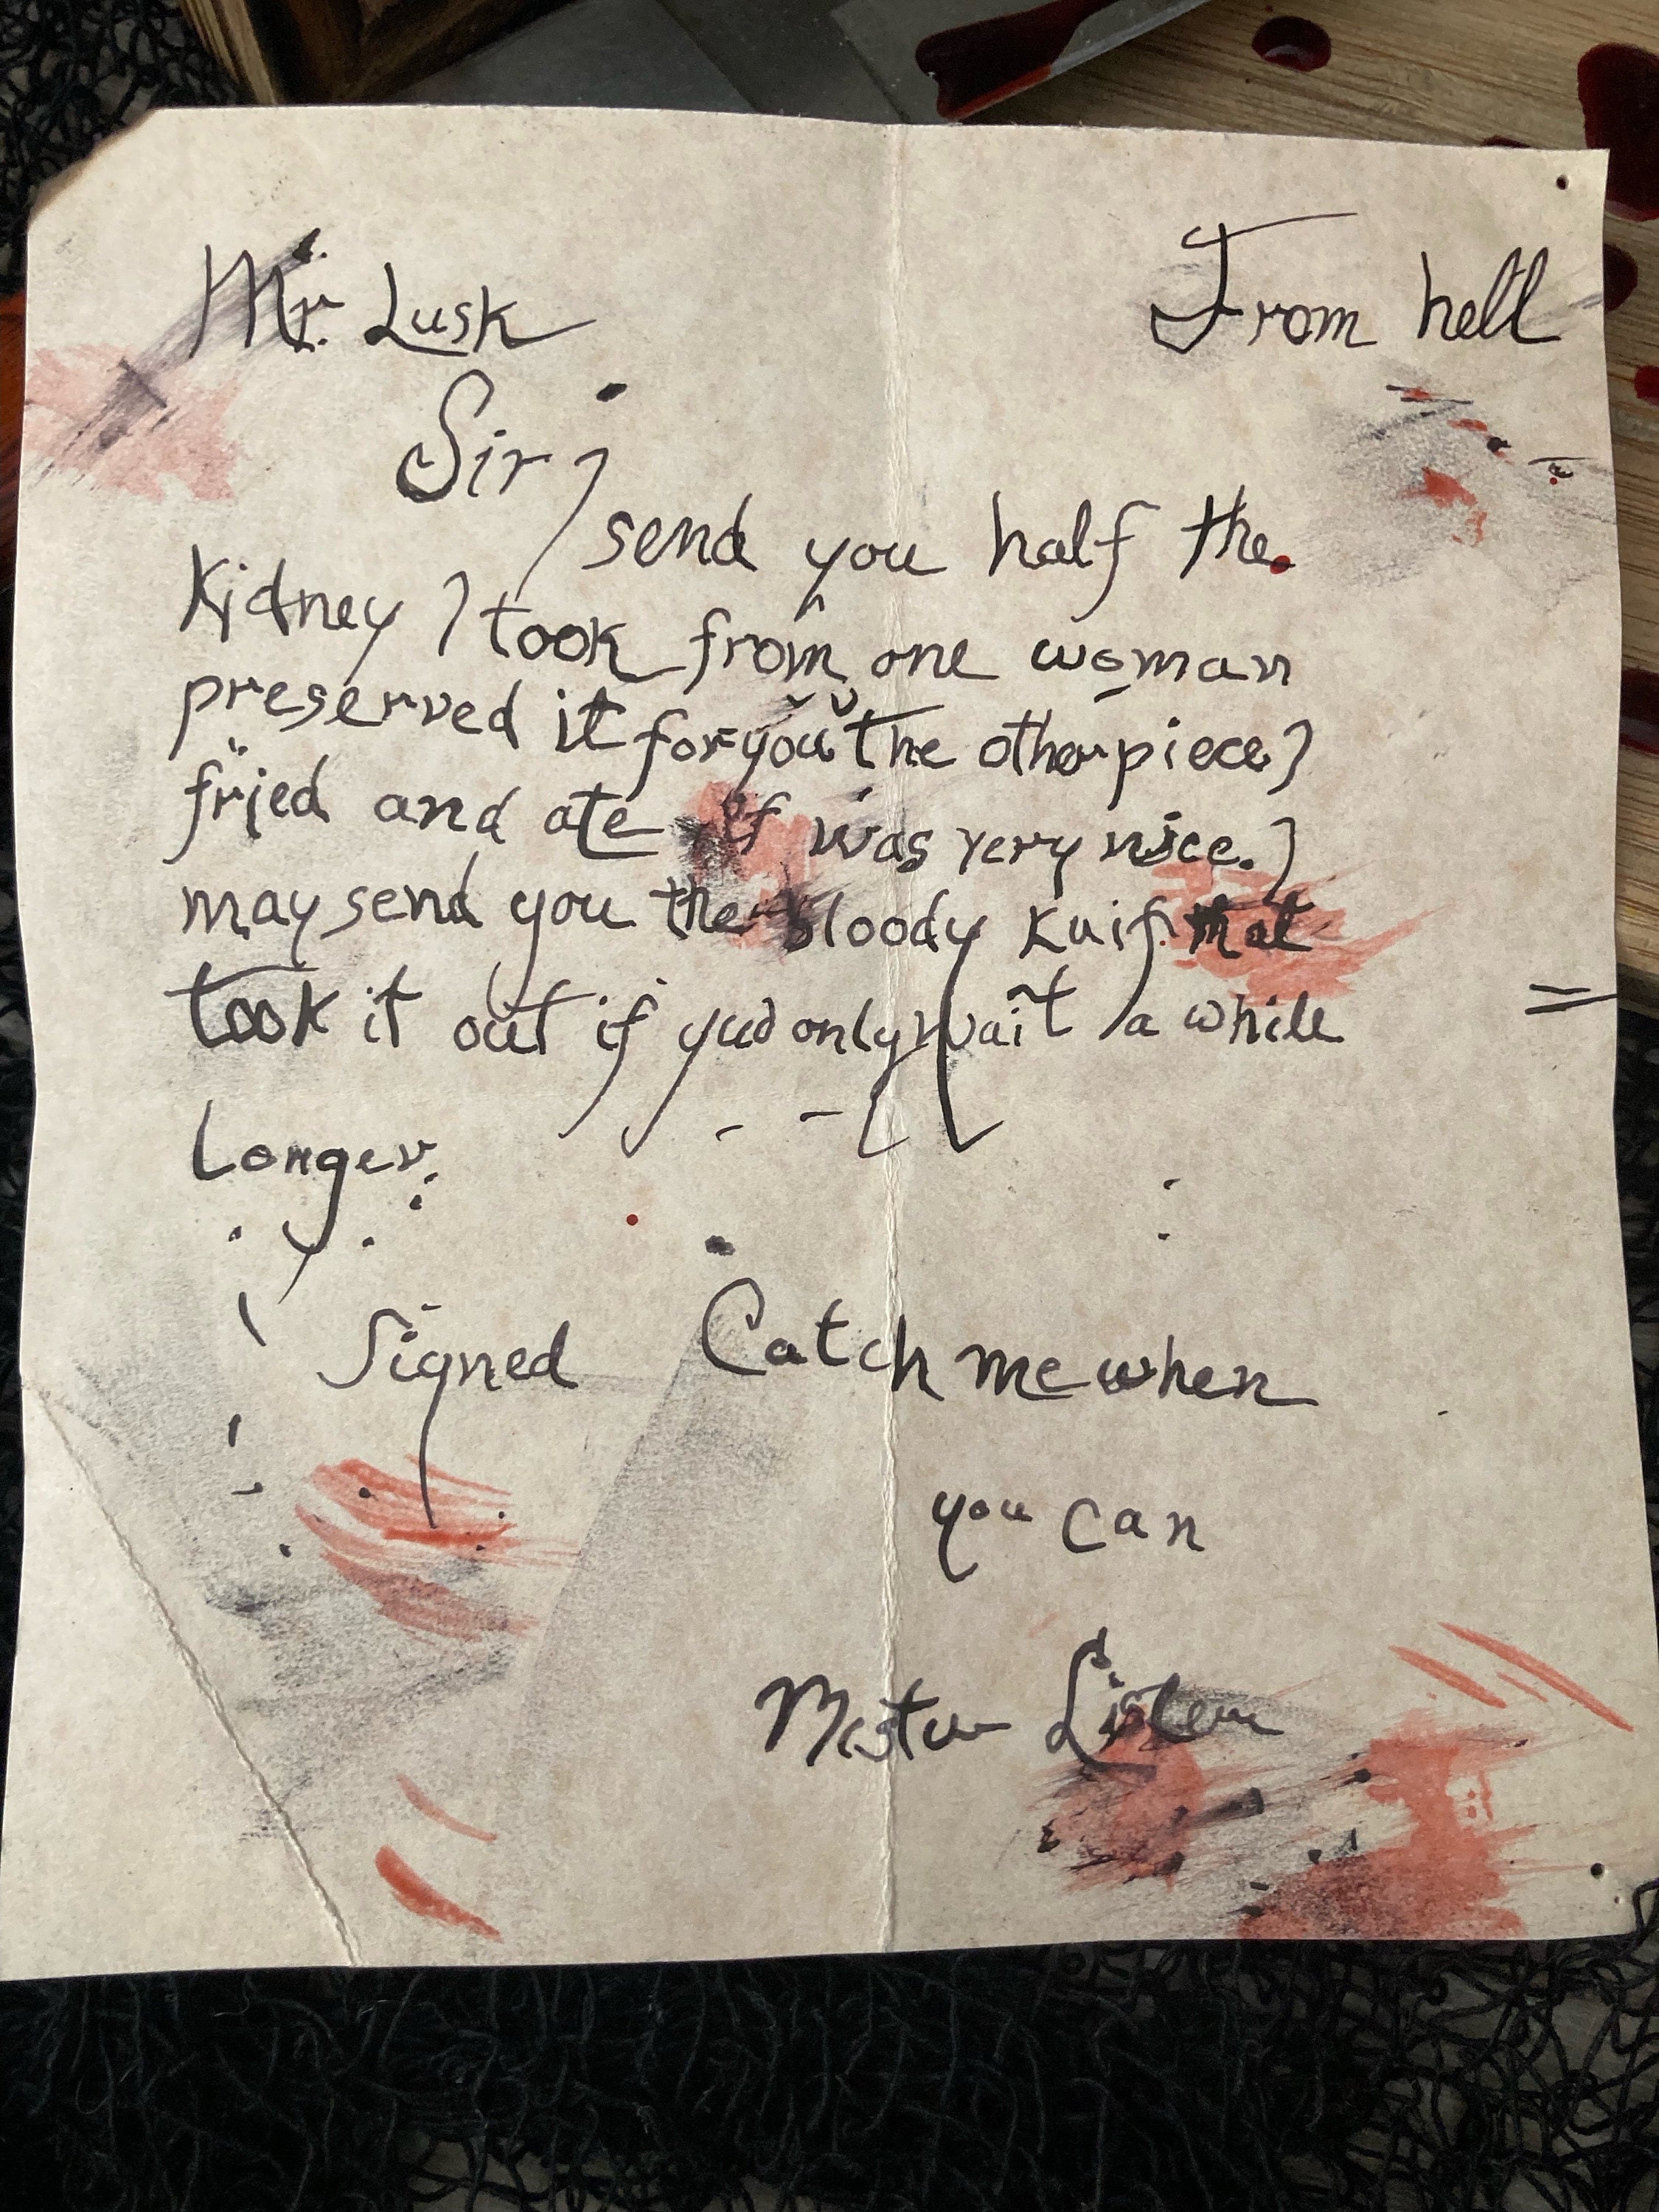 Mr. Lusk From hell
Sir
I send you half the
Kidney I took from one woman
preserved it for you the other piece I
fried and ate it was very nice. I
may send you the bloody knif that
took it out if you only wait a while
Longer.
Signed Catch me when
you can
Mister Lusk